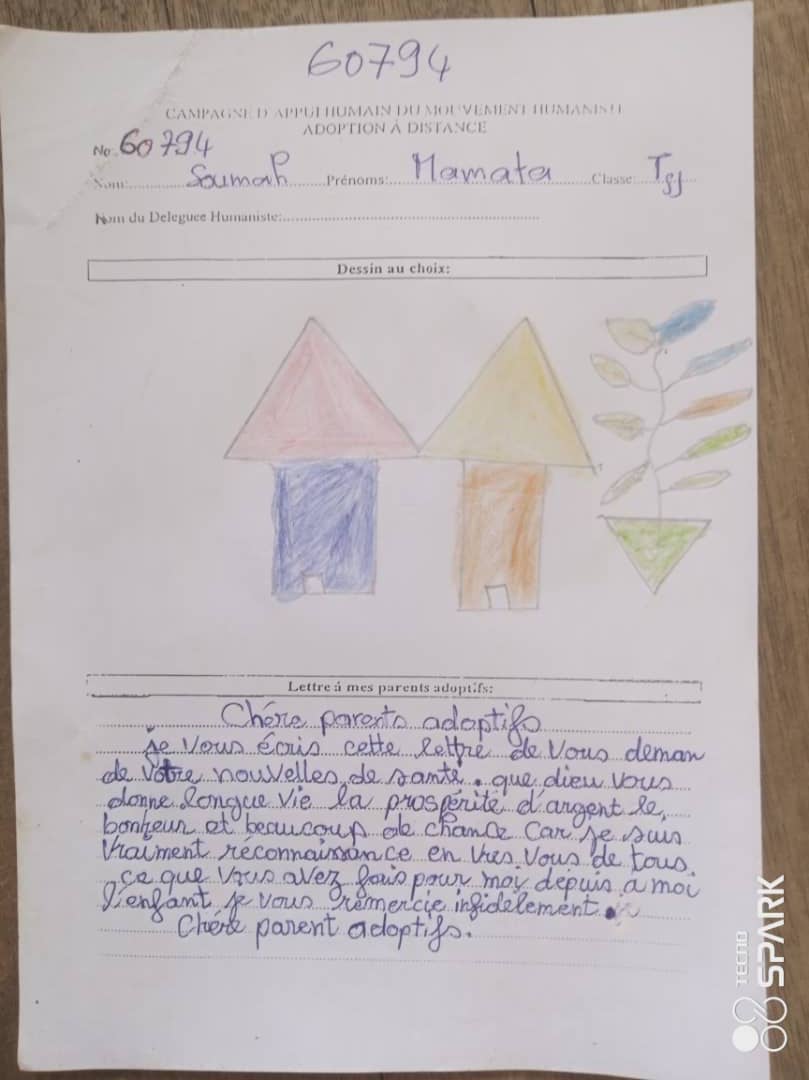 60794
CAMPAGNE D'APPUI HUMAIN DU MOUVEMENT HUMANISTE
ADOPTION À DISTANCE
No: 60794
Nom: Soumah Prénoms: Mamata Classe:
Nom du Deleguee Humaniste:
Dessin au choix:
Lettre á mes parents adoptifs:
Chére parents adoptifs
je vous écris cette lettre de vous deman
de votre nouvelles de santé. que dieu vous
donne longue vie la prospérité d'argent le
bonheur et beaucoup de chance car je suis
vraiment réconnaissance en vres vous de tous
ce que vous avez fais pour moi depuis a moi
l'enfant je vous rémercie infidèlement.
Chére parent adoptifs.
TECNO
SPARK